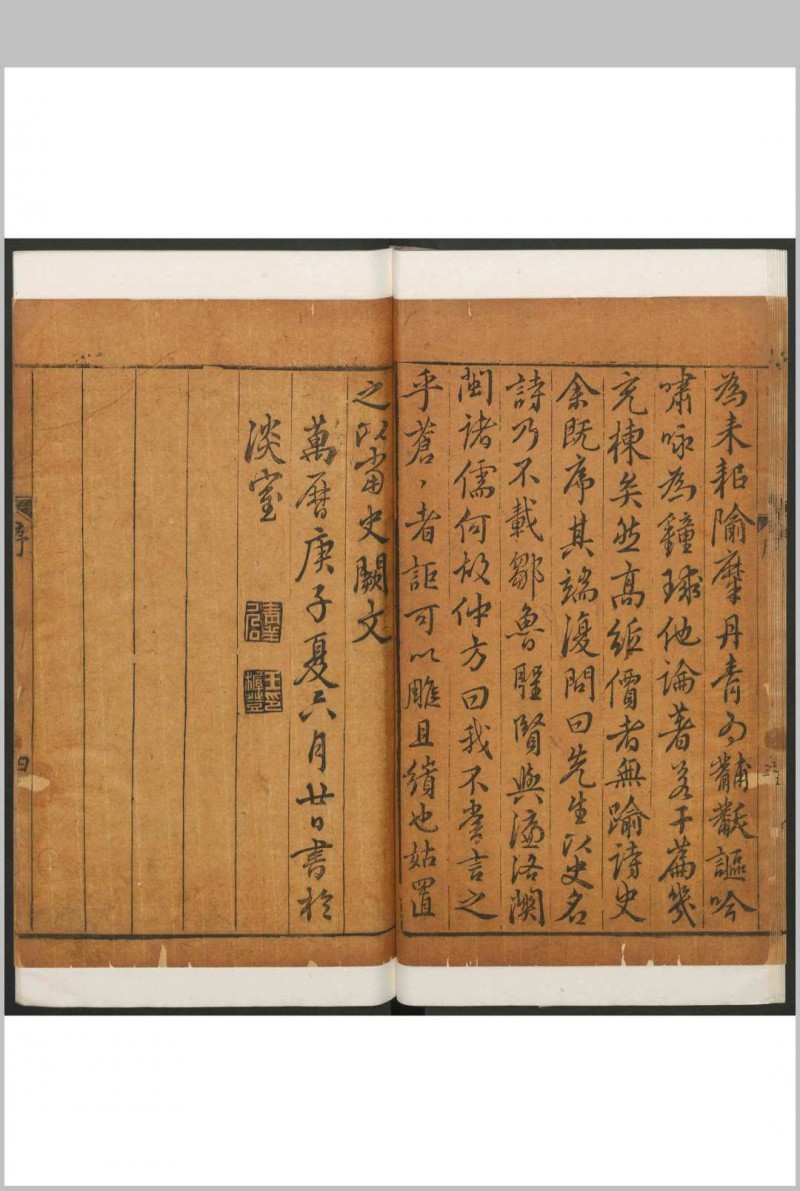 為耒耜隃麋丹青為黼黻謳吟
嘯咏為鐘球他論著若干篇幾
充棟矣然高紙價者無踰詩史
余既序其端復問曰先生以史名
詩乃不載鄒魯聖賢與濂洛關
閩諸儒何故仲方曰我不嘗言之
乎蒼、者詎可以雕且繢也姑置
之以當史闕文
萬曆庚子夏六月廿日書於
淡室
序
四